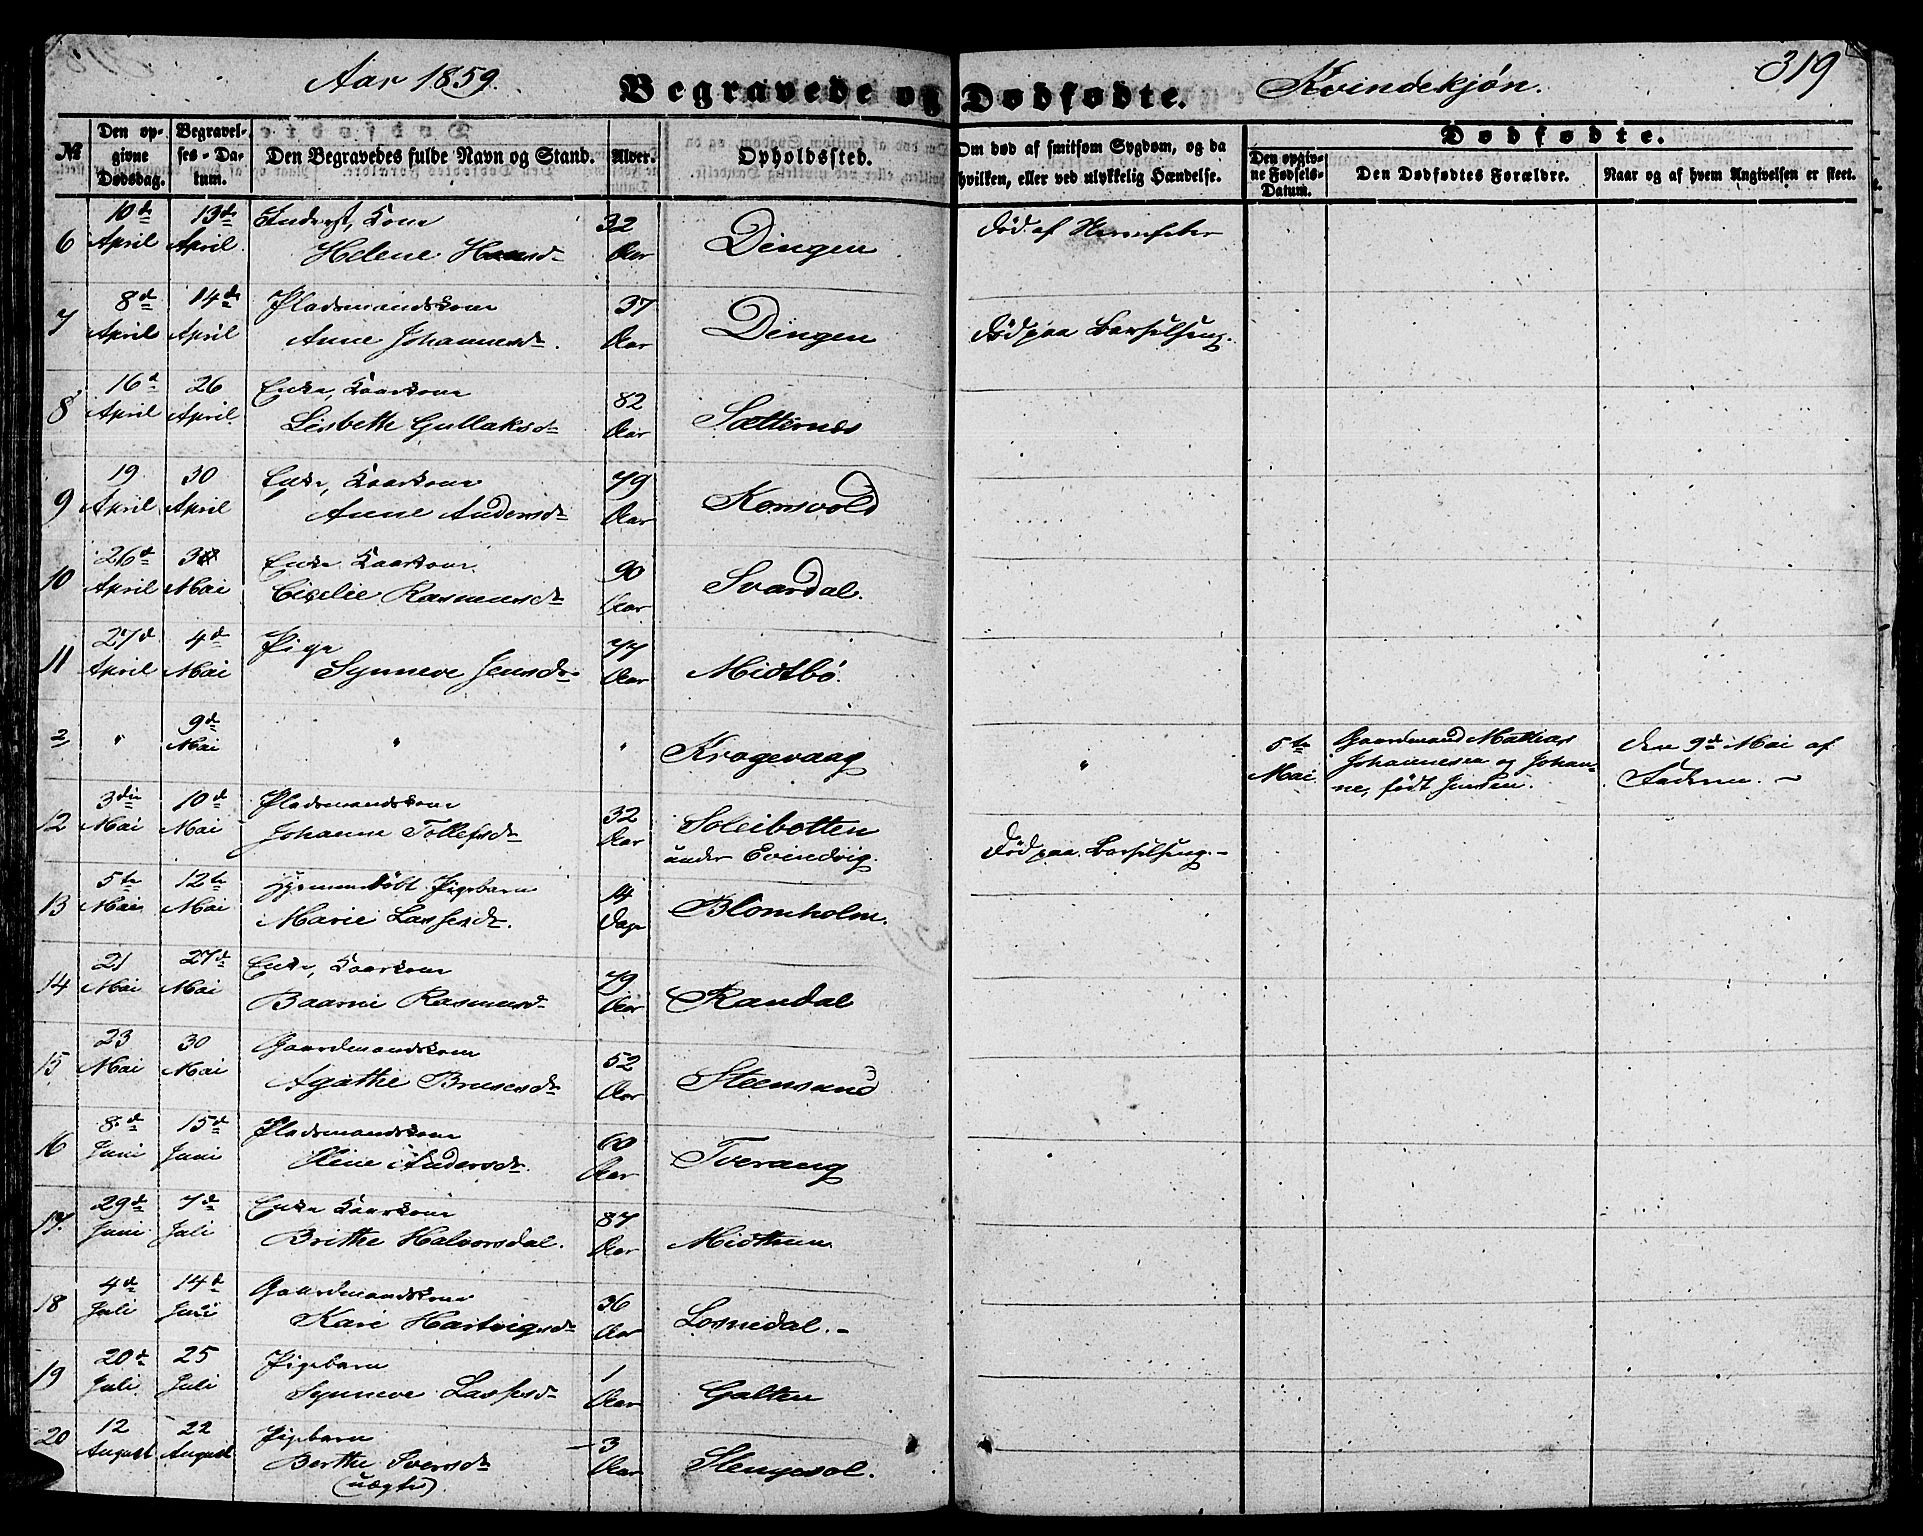 Aar 1859. Begravede og Dødfødte. Kvindekjøn. 319
№ Den opgivne Dødsdag. Begravelses-Datum. Den Begravedes fulde Navn og Stand. Alder. Opholdssted. Om død af smitsom Sygdom, og da hvilken, eller ved ulykkelig Hændelse. Dødfødte.
Den opgivne Fødsels-Datum. Den Dødfødtes Forældre. Naar og af hvem Angivelsen er skeet.
6 10de April 13de April Inderst, Kone 32 Aar Dingen Død af
Helene Hansdr
7 8de April 14de April Pladsmandskone 37 Aar Dingen Død paa Barselseng.
Anne Johannesdr.
8 16de April 26 April Enke, Kaarkone 82 Aar Sætternes
Lisbette Gullaksdr
9 19 April 30 April Enke, Kaarkone 79 Aar Konsvold
Anne Andersdr
10 26de April Mai Enke Kaarkone 90 Aar Svardal.
Cicelie Rasmusdr
11 27de April 4de Mai Pige 77 Aar Midtbø.
Synneve Jensdr
2 " 9de Mai " " Kragevaag " 5te Mai Gaardmand Mathias
Johannesen og Johan-
ne, født Jensen. den 9de Mai af
Faderen. –
12 3die Mai 10de Mai Pladsmandskone 32 Aar Soleibotten
Johanne Tollefsdr under Evindvig. Død paa Barselseng. –
13 5te Mai 12te Mai Hjemmedøbt Pigebarn 14 Dage Blomholm.
Marie Lassesdr.
14 21 Mai 27de Mai Enke, Kaarkone 79 Aar Randal
Baarni Rasmusdr
15 23 Mai 30 Mai Gaardmandskone 52 Aar Steensund
Agathe Brusesdr
16 8de Juni 15de Juni Pladsmandskone 60 Aar Tverang
Oline Andersdr.
17. 29de Juni 7de Juli Enke Kaarkone 87 Aar Midthun
Brithe Halvorsdal.
18 4de Juli 14de Juli Gaardmandskone 36 Aar Losnedal. –
Kari Hartvigsdr
19 20de Juli 25 Juli Pigebarn 1 Aar Galten
Synneve Lassesdr
20 12 August 22 August Pigebarn 3 Aar Stengesol.
Berthe Iversdr
(uægte)